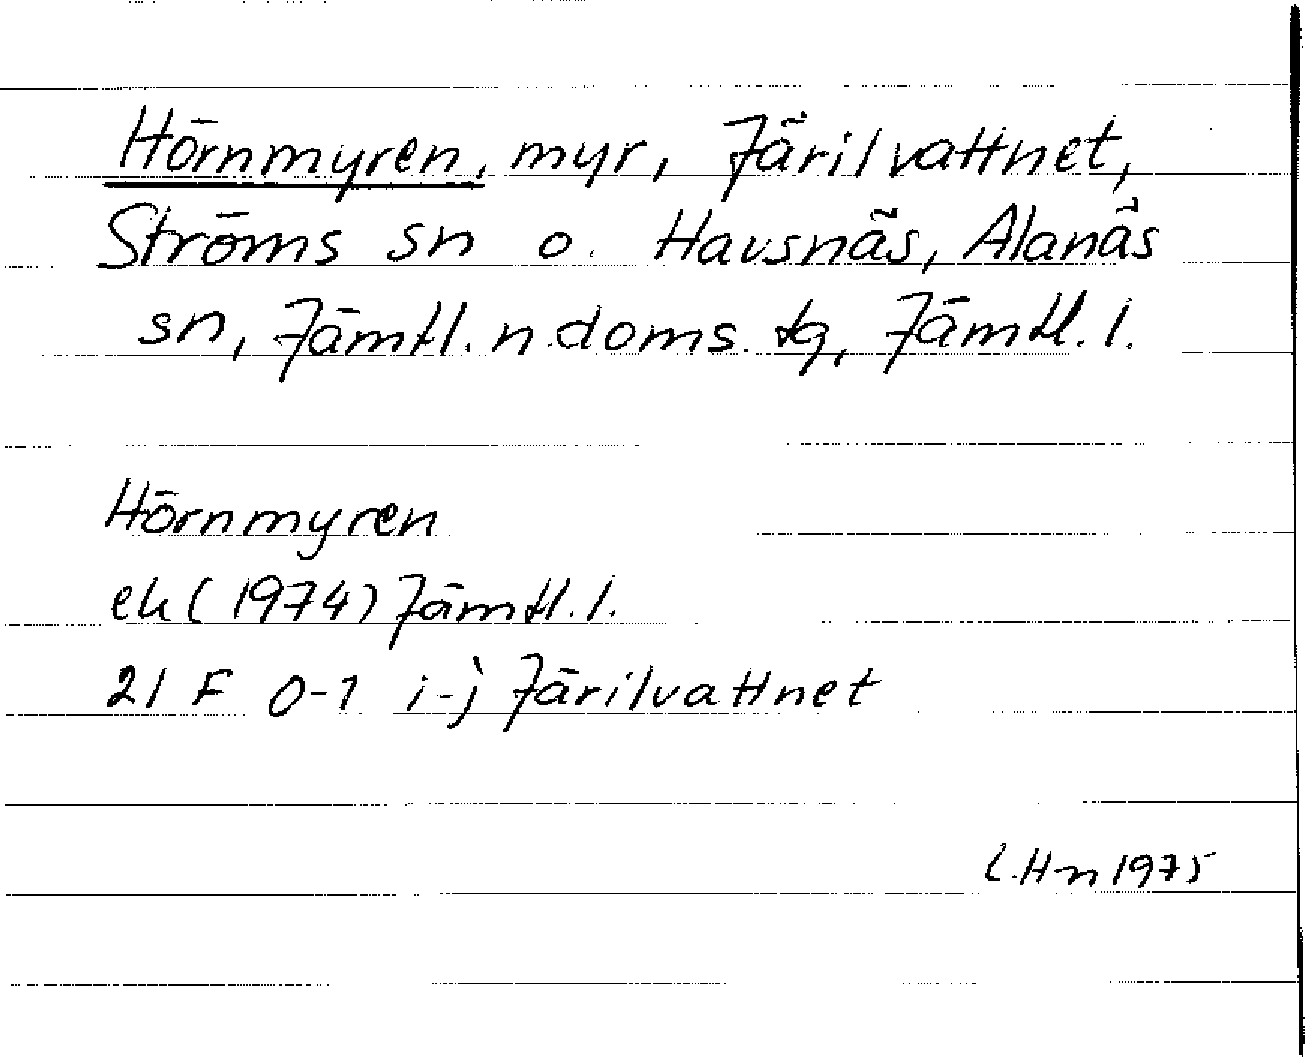 Hörnmyren, myr, Järilvattnet,
Ströms sn o. Havsnäs, Alanäs
sn, Jämtl. n. doms. tg, Jämtl. l.
Hörnmyren
ek (1974) Jämtl. l.
21 F 0-1 i-j Järilvattnet
L.H-n 1975